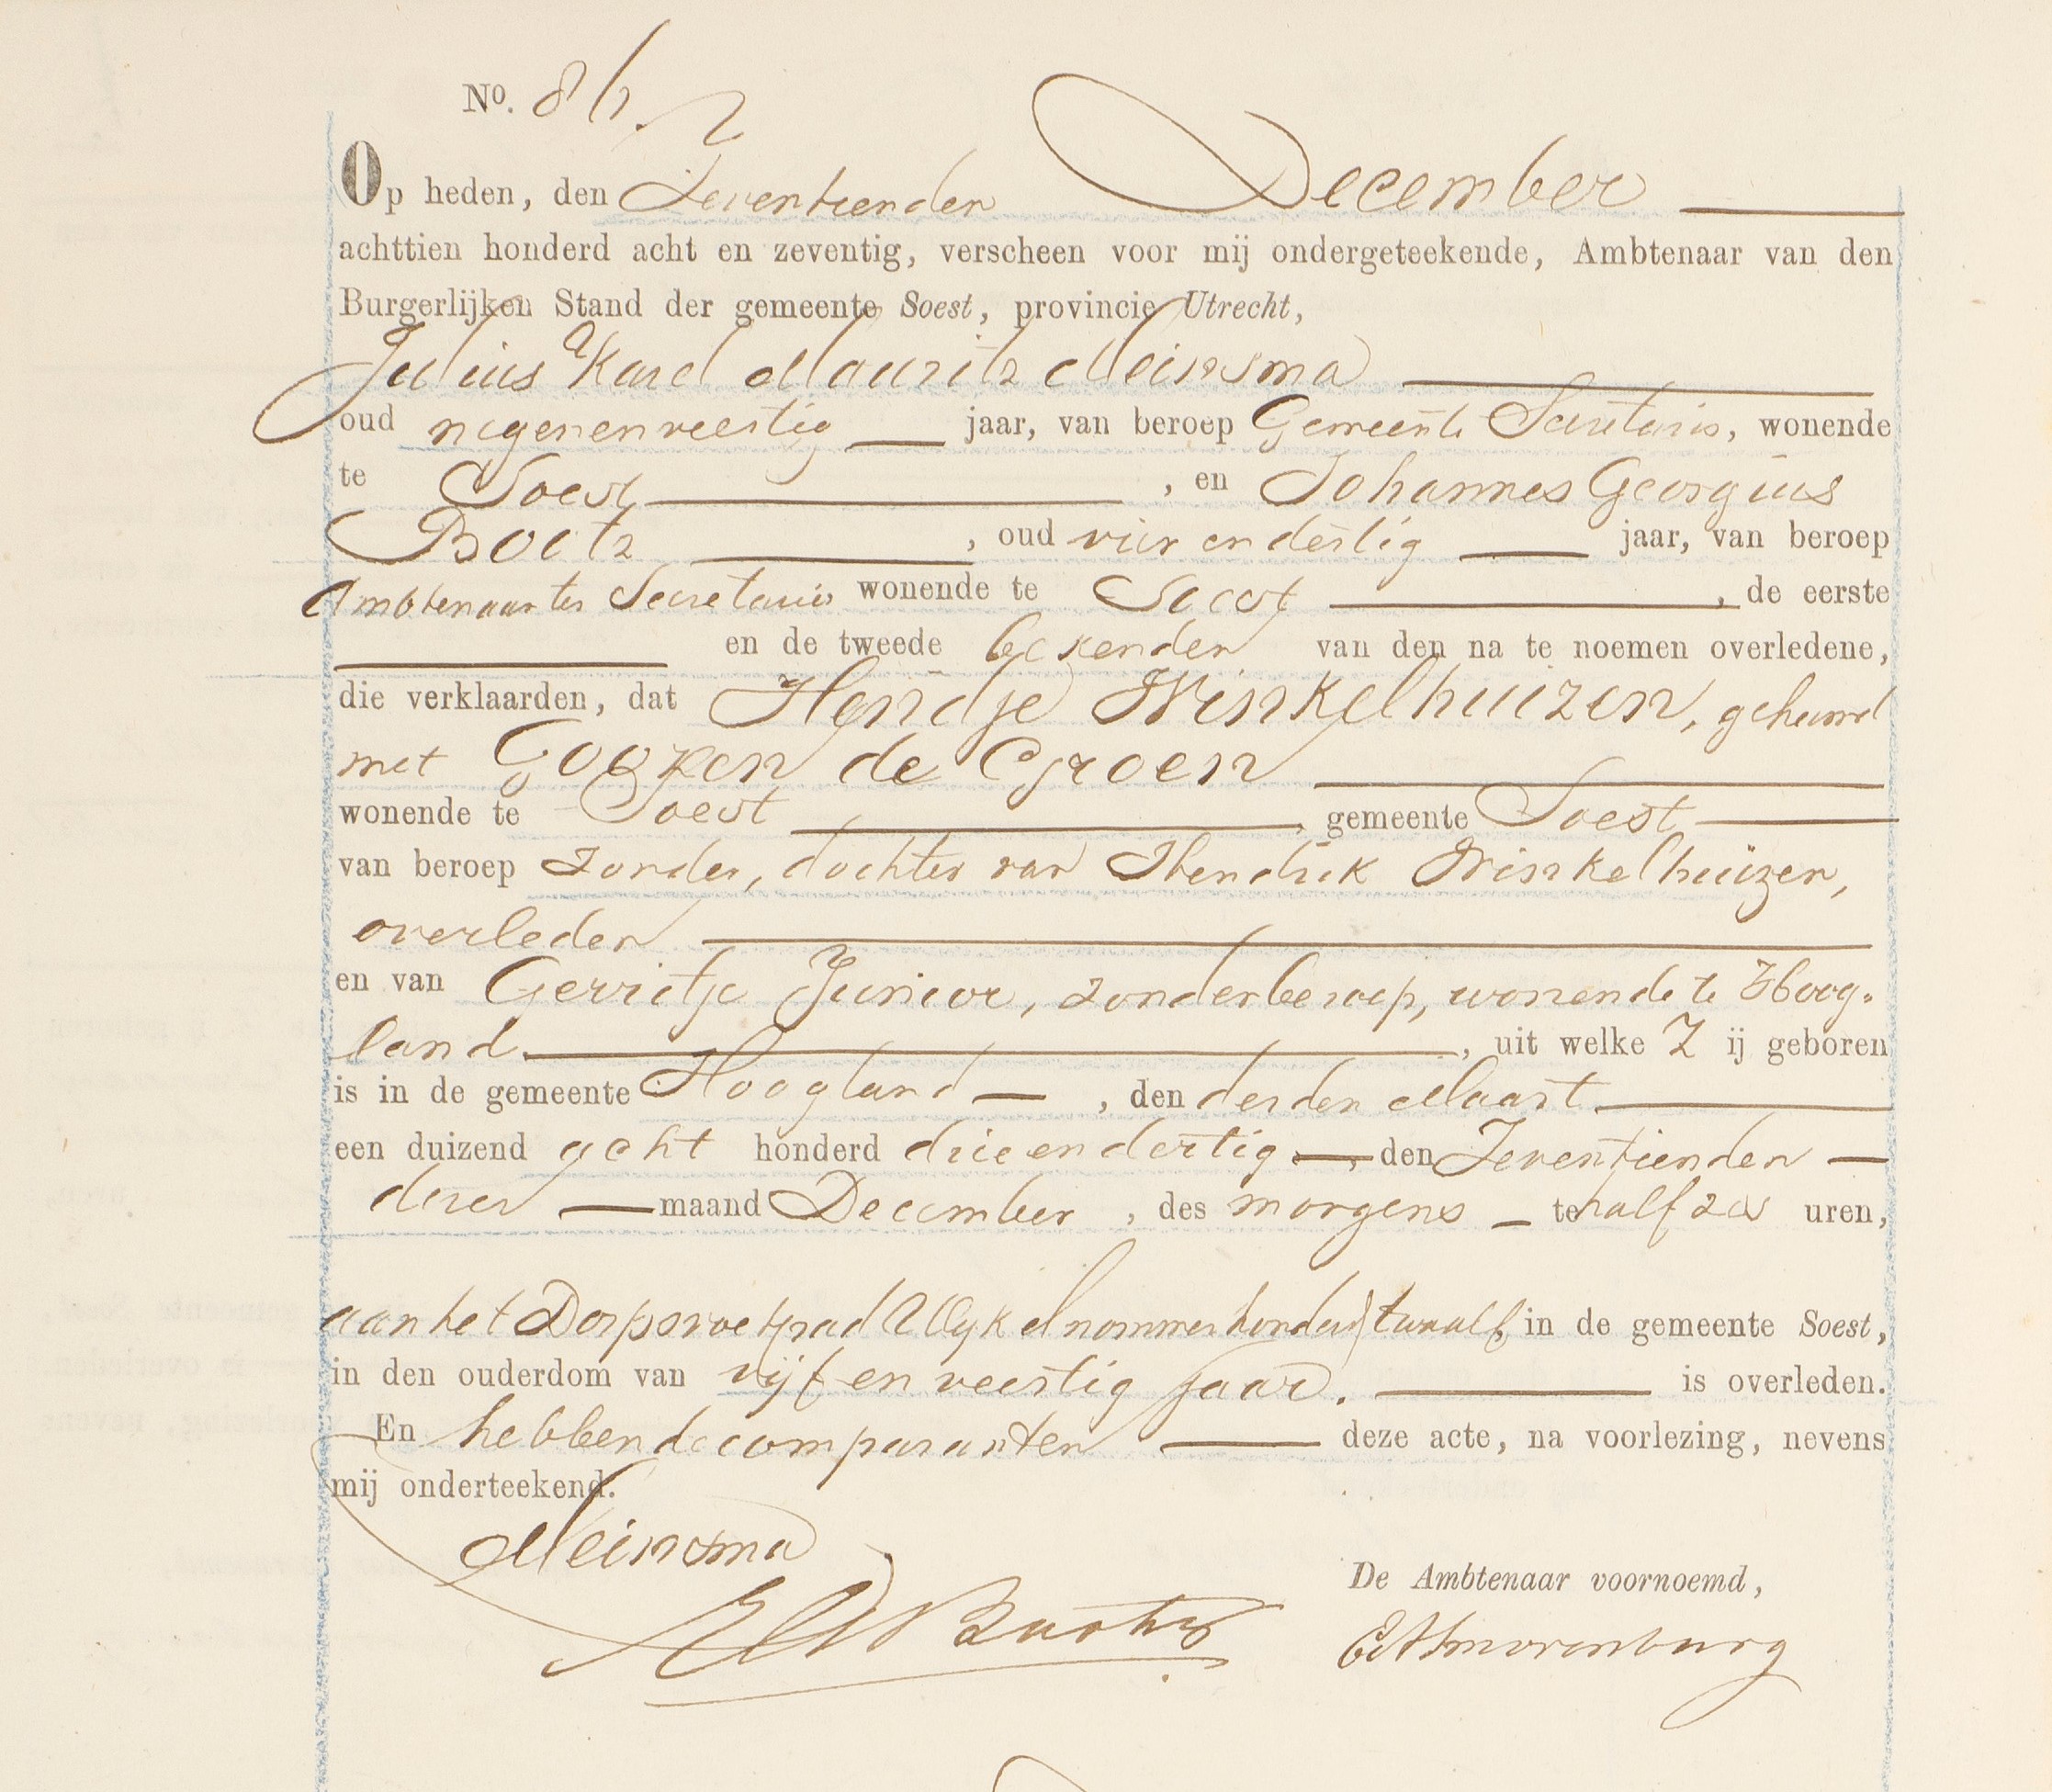 No. 86.
Op heden, den Zeventienden December
achttien honderd acht en zeventig, verscheen voor mij ondergeteekende, Ambtenaar van den
Burgerlijken Stand der gemeente Soest, provincie Utrecht,
Julius Karel Maurits Meinsma
oud negenenveertig jaar, van beroep Gemeente Secretaris, wonende
te Soest, en Johannes Georgius
Bootz, oud vier en dertig jaar, van beroep
Ambtenaar ter Secretarie wonende te Soest, de eerste
en de tweede bekenden van den na te noemen overledene,
die verklaarden, dat Hendje Winkelhuizen, gehuwd
met Goozen de Groen
wonende te Soest, gemeente Soest
van beroep zonder, dochter van Hendrik Winkelhuizen,
overleden
en van Gerritje Junior, zonder beroep, wonende te Hoog-
land, uit welke Zij geboren
is in de gemeente Hoogland, den derden Maart
een duizend acht honderd drieendertig, den Zeventienden
dezer maand December, des morgens te half zes uren,
aan het Dorpsvoetpad Wijk nommer honderd twaalf, in de gemeente Soest,
in den ouderdom van vijf en veertig jaar. is overleden.
En hebben de comparanten deze acte, na voorlezing, nevens
mij onderteekend.
Meinsma
De Ambtenaar voornoemd,